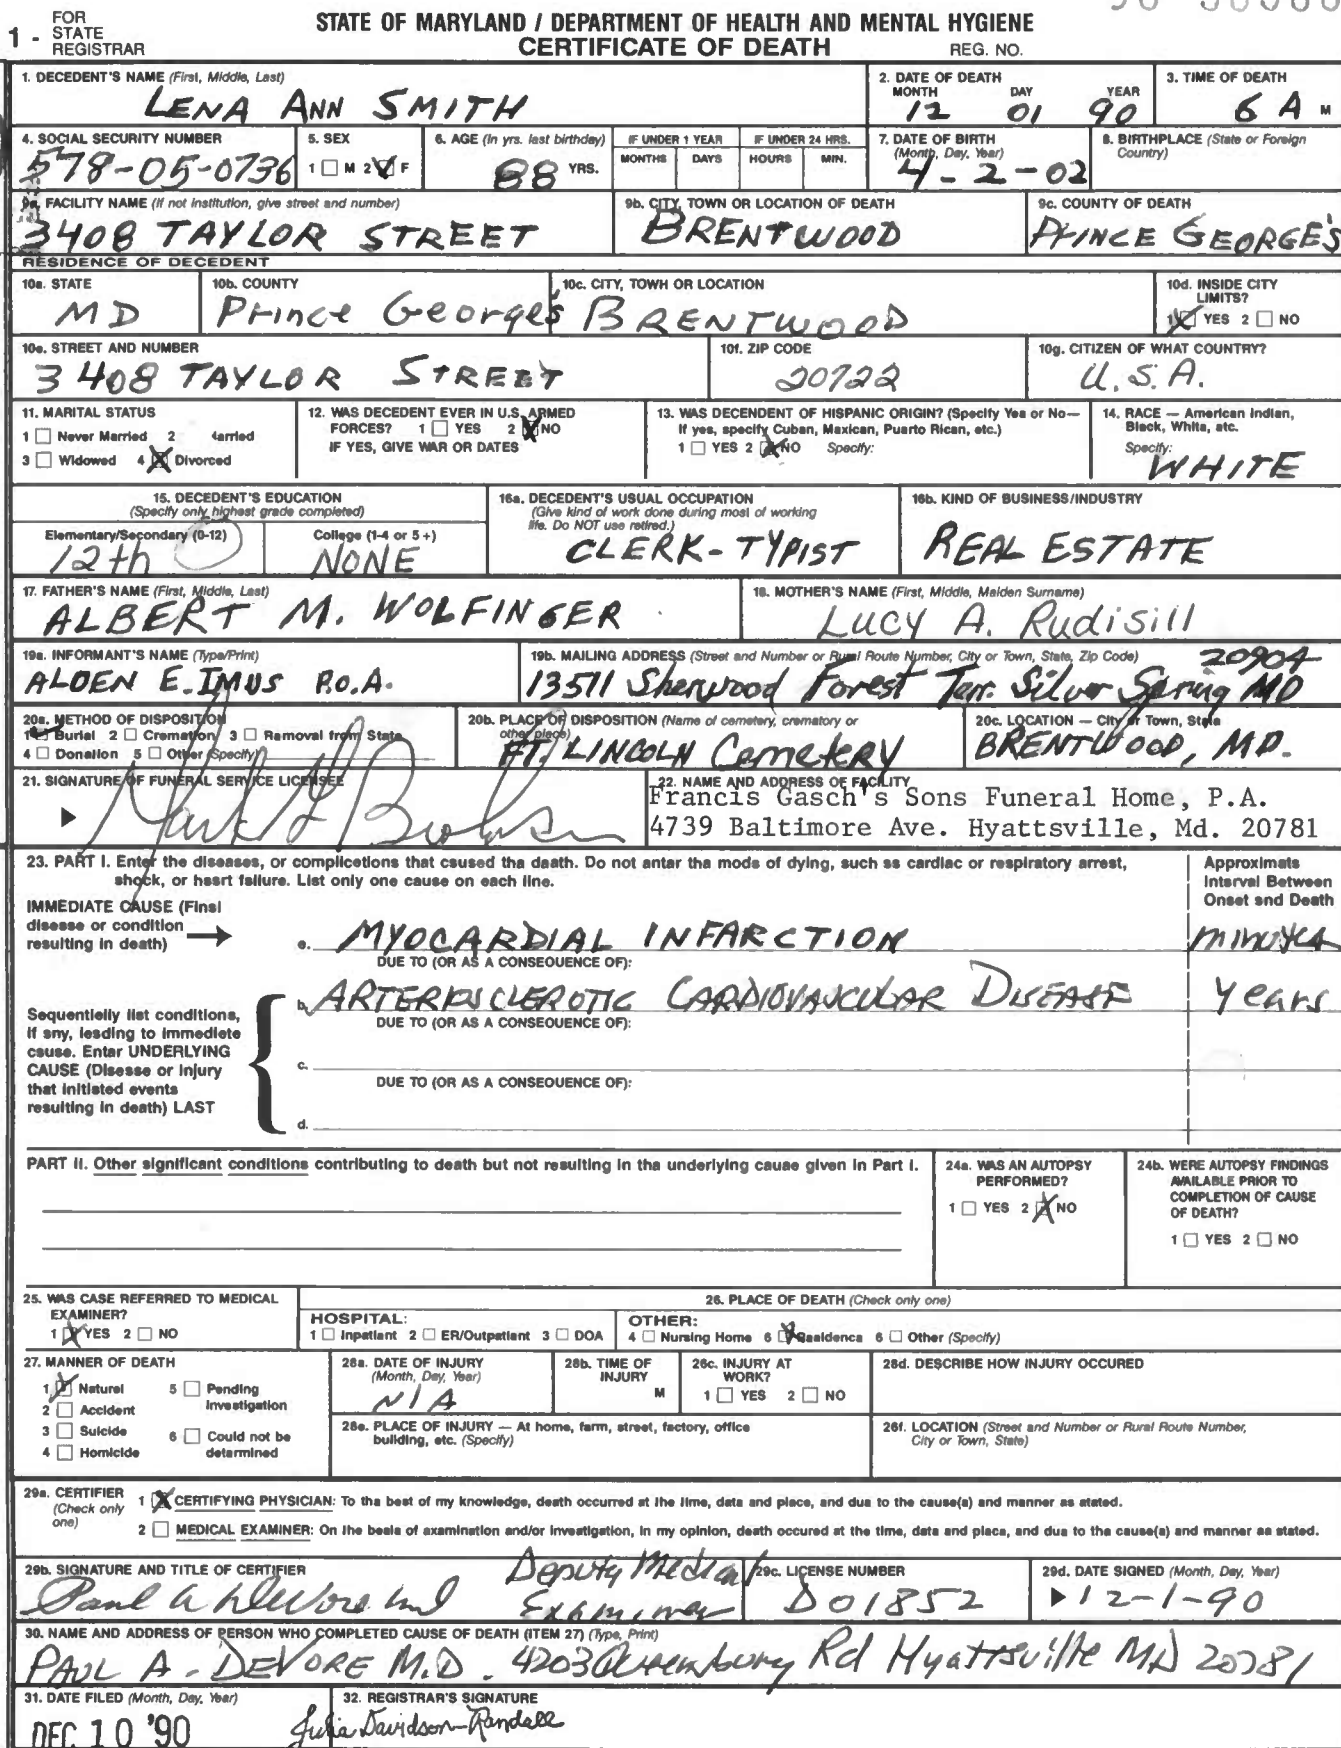 FOR
1 - STATE
REGISTRAR
STATE OF MARYLAND / DEPARTMENT OF HEALTH AND MENTAL HYGIENE
CERTIFICATE OF DEATH
REG. NO.
1. DECEDENT'S NAME (First, Middle, Last)
LENA ANN SMITH
2. DATE OF DEATH
MONTH DAY YEAR
12 01 90
3. TIME OF DEATH
6 A M
4. SOCIAL SECURITY NUMBER
578-05-0736
5. SEX
1 M 2 F
6. AGE (In yrs. last birthday)
88 YRS.
IF UNDER 1 YEAR
MONTHS DAYS
IF UNDER 24 HRS.
HOURS MIN.
7. DATE OF BIRTH
(Month, Day, Year)
4-2-02
8. BIRTHPLACE (State or Foreign
Country)
9a. FACILITY NAME (If not institution, give street and number)
3408 TAYLOR STREET
9b. CITY, TOWN OR LOCATION OF DEATH
BRENTWOOD
9c. COUNTY OF DEATH
PRINCE GEORGE'S
RESIDENCE OF DECEDENT
10a. STATE
MD
10b. COUNTY
Prince George's
10c. CITY, TOWN OR LOCATION
BRENTWOOD
10d. INSIDE CITY
LIMITS?
1 YES 2 NO
10e. STREET AND NUMBER
3408 TAYLOR STREET
10f. ZIP CODE
20722
10g. CITIZEN OF WHAT COUNTRY?
U.S.A.
11. MARITAL STATUS
1 Never Married 2 arried
3 Widowed 4 Divorced
12. WAS DECEDENT EVER IN U.S. ARMED
FORCES? 1 YES 2 NO
IF YES, GIVE WAR OR DATES
13. WAS DECENDENT OF HISPANIC ORIGIN? (Specify Yes or No—
If yes, specify Cuban, Mexican, Puerto Rican, etc.)
1 YES 2 NO Specify:
14. RACE — American Indian,
Black, White, etc.
Specify:
WHITE
15. DECEDENT'S EDUCATION
(Specify only highest grade completed)
Elementary/Secondary (0-12)
12th
College (1-4 or 5+)
NONE
16a. DECEDENT'S USUAL OCCUPATION
(Give kind of work done during most of working
life. Do NOT use retired.)
CLERK-TYPIST
16b. KIND OF BUSINESS/INDUSTRY
REAL ESTATE
17. FATHER'S NAME (First, Middle, Last)
ALBERT M. WOLFINGER
18. MOTHER'S NAME (First, Middle, Maiden Surname)
Lucy A. Rudisill
19a. INFORMANT'S NAME (Type/Print)
ALDEN E. IMUS P.O.A.
19b. MAILING ADDRESS (Street and Number or Rural Route Number, City or Town, State, Zip Code)
20904
13511 Sherwood Forest Terr. Silver Spring MD
20a. METHOD OF DISPOSITION
1 Burial 2 Cremation 3 Removal from State
4 Donation 5 Other (Specify)
20b. PLACE OF DISPOSITION (Name of cemetery, crematory or
other place)
FT. LINCOLN Cemetery
20c. LOCATION — City or Town, State
BRENTWOOD, MD.
21. SIGNATURE OF FUNERAL SERVICE LICENSEE
22. NAME AND ADDRESS OF FACILITY
Francis Gasch's Sons Funeral Home, P.A.
4739 Baltimore Ave. Hyattsville, Md. 20781
23. PART I. Enter the diseases, or complications that caused the death. Do not enter the mode of dying, such as cardiac or respiratory arrest,
shock, or heart failure. List only one cause on each line.
Approximate
Interval Between
Onset and Death
IMMEDIATE CAUSE (Final
disease or condition
resulting in death)
a. MYOCARDIAL INFARCTION minutes
DUE TO (OR AS A CONSEQUENCE OF):
b. ARTERIOSCLEROTIC CARDIOVASCULAR DISEASE years
DUE TO (OR AS A CONSEQUENCE OF):
Sequentially list conditions,
if any, leading to immediate
cause. Enter UNDERLYING
CAUSE (Disease or injury
that initiated events
resulting in death) LAST
c.
DUE TO (OR AS A CONSEQUENCE OF):
d.
PART II. Other significant conditions contributing to death but not resulting in the underlying cause given in Part I.
24a. WAS AN AUTOPSY
PERFORMED?
1 YES 2 NO
24b. WERE AUTOPSY FINDINGS
AVAILABLE PRIOR TO
COMPLETION OF CAUSE
OF DEATH?
1 YES 2 NO
25. WAS CASE REFERRED TO MEDICAL
EXAMINER?
1 YES 2 NO
26. PLACE OF DEATH (Check only one)
HOSPITAL:
1 Inpatient 2 ER/Outpatient 3 DOA
OTHER:
4 Nursing Home 5 Residence 6 Other (Specify)
27. MANNER OF DEATH
1 Natural 5 Pending
Investigation
2 Accident
3 Suicide 6 Could not be
4 Homicide determined
28a. DATE OF INJURY
(Month, Day, Year)
N/A
28b. TIME OF
INJURY
M
28c. INJURY AT
WORK?
1 YES 2 NO
28d. DESCRIBE HOW INJURY OCCURED
28e. PLACE OF INJURY — At home, farm, street, factory, office
building, etc. (Specify)
28f. LOCATION (Street and Number or Rural Route Number,
City or Town, State)
29a. CERTIFIER
(Check only
one)
1 CERTIFYING PHYSICIAN: To the best of my knowledge, death occurred at the time, date and place, and due to the cause(s) and manner as stated.
2 MEDICAL EXAMINER: On the basis of examination and/or investigation, in my opinion, death occured at the time, date and place, and due to the cause(s) and manner as stated.
29b. SIGNATURE AND TITLE OF CERTIFIER
Paul A DeVore md Deputy Medical
Examiner
29c. LICENSE NUMBER
D01852
29d. DATE SIGNED (Month, Day, Year)
12-1-90
30. NAME AND ADDRESS OF PERSON WHO COMPLETED CAUSE OF DEATH (ITEM 27) (Type, Print)
PAUL A. DEVORE M.D. 4203 Queensbury Rd Hyattsville MD 20781
31. DATE FILED (Month, Day, Year)
DEC 10 '90
32. REGISTRAR'S SIGNATURE
Julia Davidson-Randall